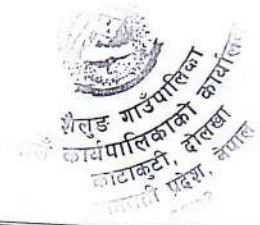 शैलुङ गाउँपालिका
कार्यपालिकाको कार्यालय
काटाकुटी, दोलखा
प्रदेश, नेपाल